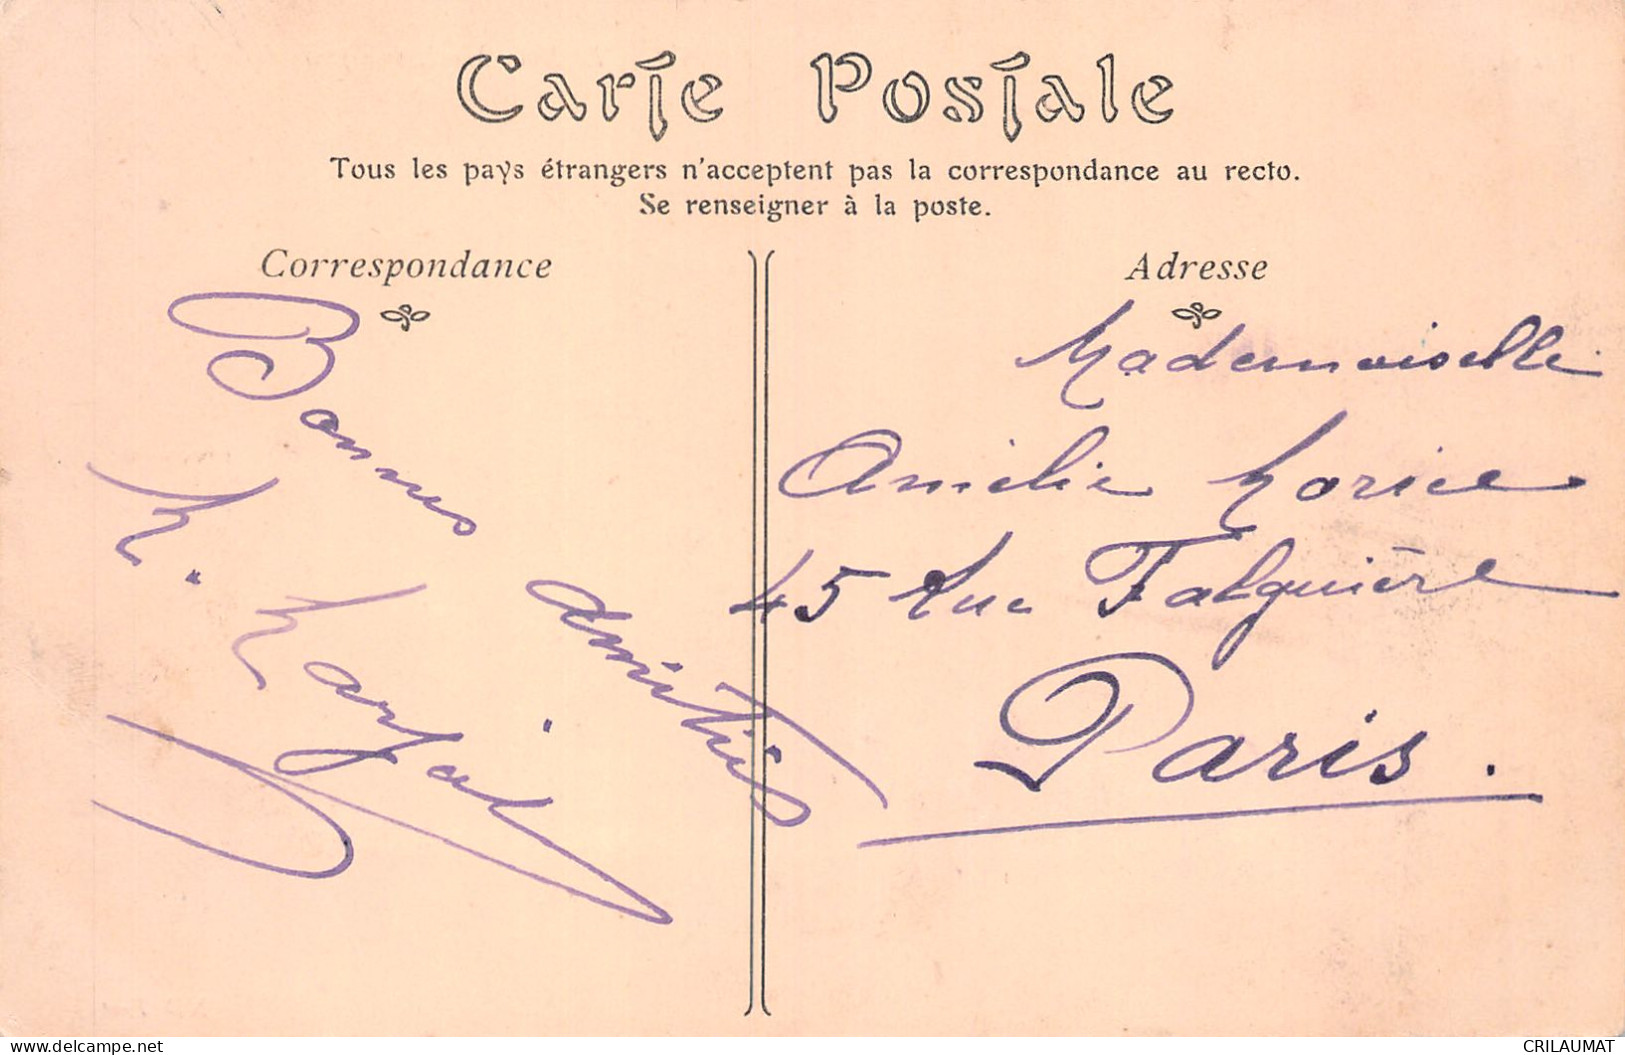 Carte Postale
Tous les pays étrangers n'acceptent pas la correspondance au recto.
Se renseigner à la poste.
Correspondance
Bonnes
amitiés
Adresse
Mademoiselle
Amélie Morice
45 Rue Falguière
Paris.
delcampe.net
CRILAUMAT